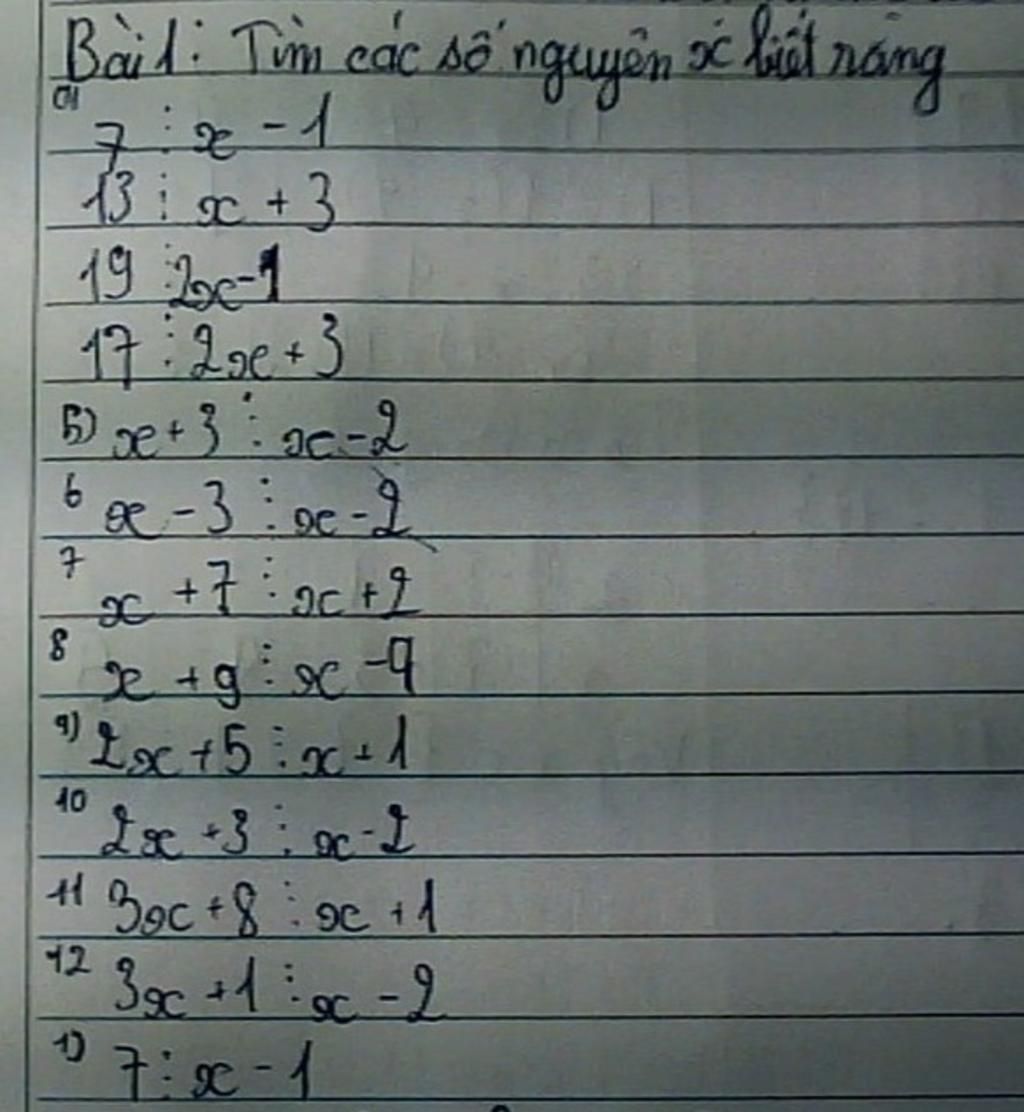 Bài 1: Tìm các số nguyên x biết rằng
a)
7 ⋮ x - 1
13 ⋮ x + 3
19 ⋮ 2x - 1
17 ⋮ 2x + 3
5) x + 3 ⋮ x - 2
6 x - 3 ⋮ x - 2
7 x + 7 ⋮ x + 2
8 x + 9 ⋮ x - 9
9) 2x + 5 ⋮ x + 1
10 2x + 3 ⋮ x - 2
11 3x + 8 ⋮ x + 1
12 3x + 1 ⋮ x - 2
1) 7 ⋮ x - 1